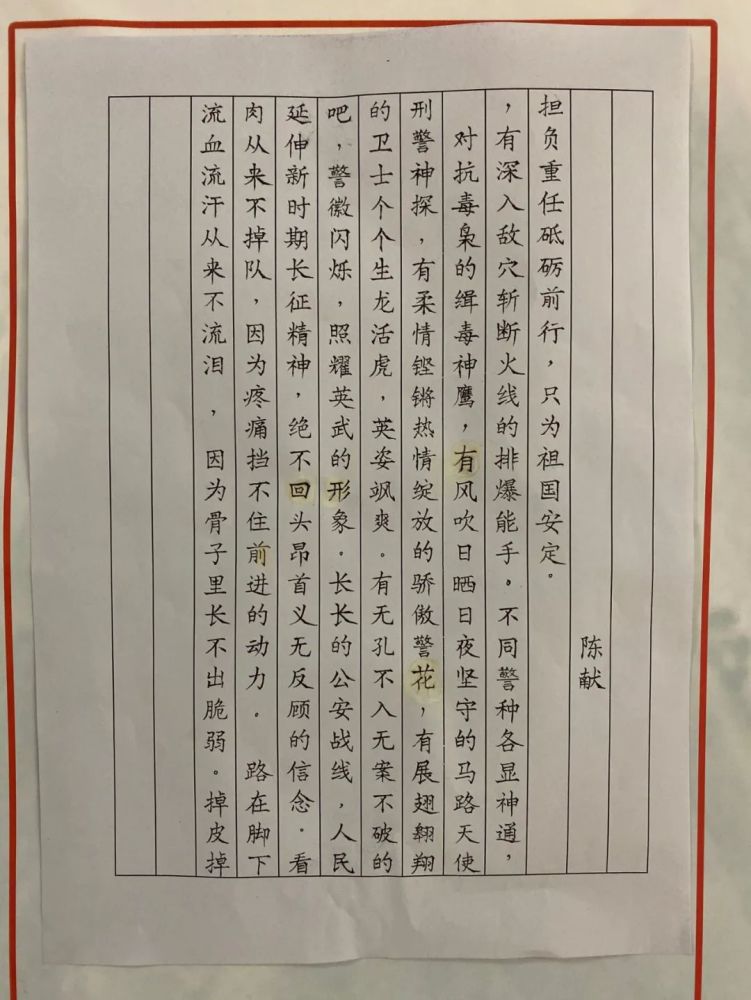 流血流汗从来不流泪，因为骨子里长不出脆弱。掉皮掉
肉从来不掉队，因为疼痛挡不住前进的动力。路在脚下
延伸新时期长征精神，绝不回头昂首义无反顾的信念。看
吧，警徽闪烁，照耀英武的形象。长长的公安战线，人民
的卫士个个生龙活虎，英姿飒爽。有无孔不入无案不破的
刑警神探，有柔情铿锵热情绽放的骄傲警花，有展翅翱翔
对抗毒枭的缉毒神鹰，有风吹日晒日夜坚守的马路天使
，有深入敌穴斩断火线的排爆能手。不同警种各显神通，
担负重任砥砺前行，只为祖国安定。
陈献